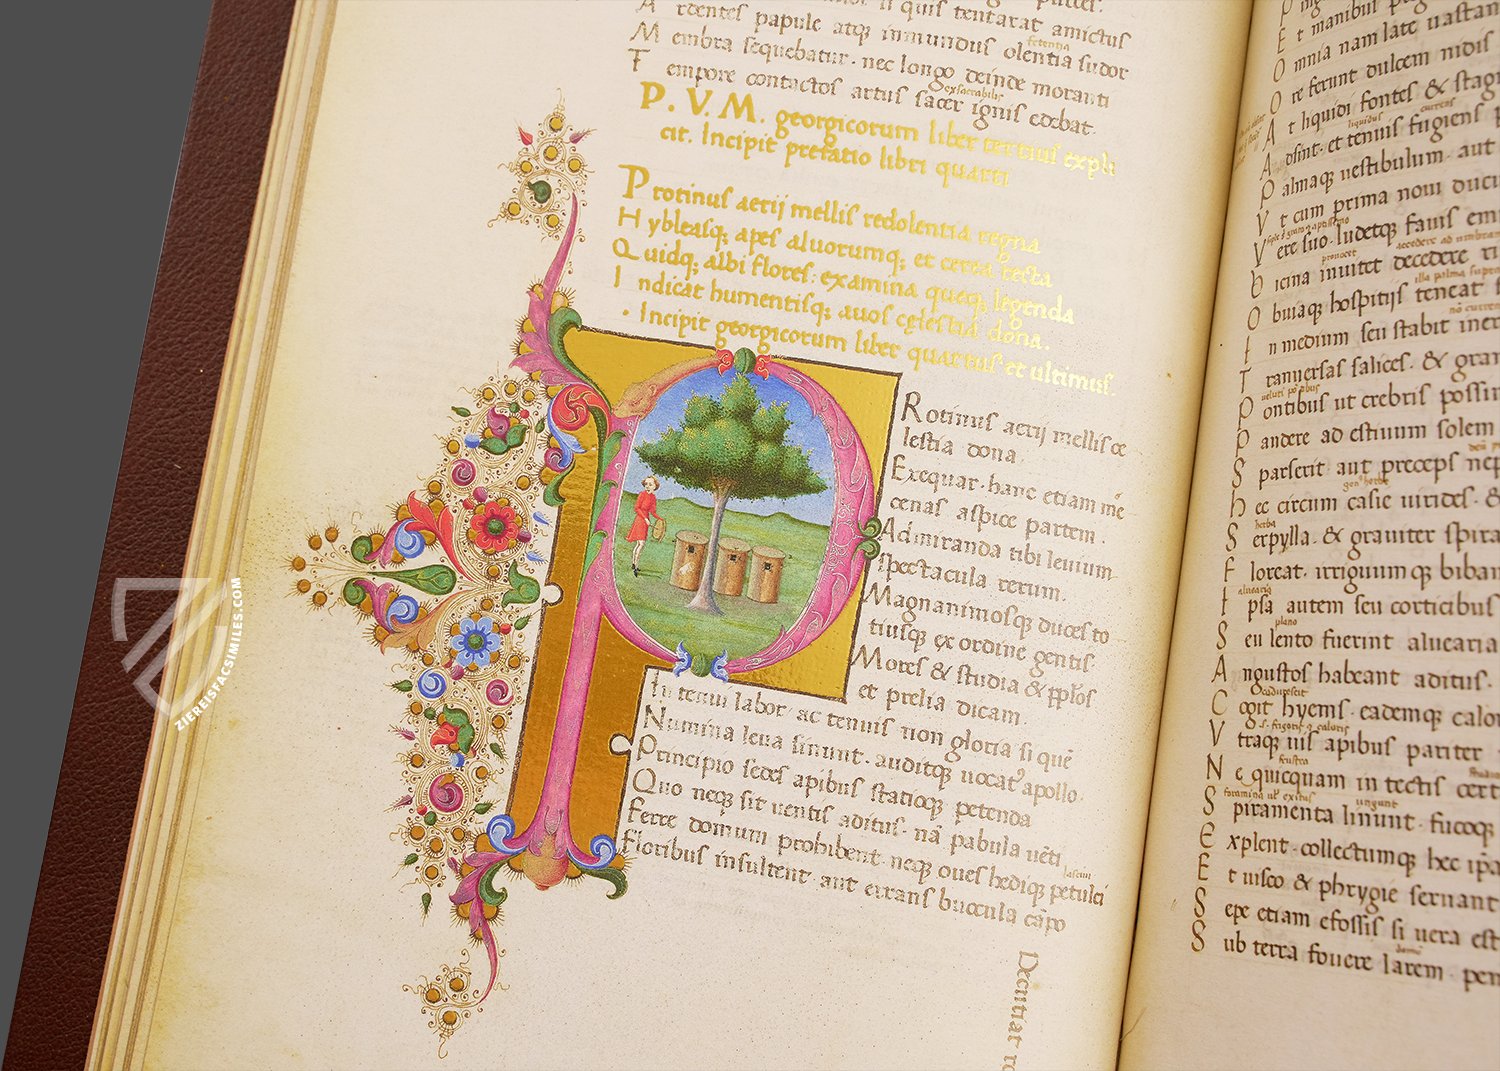 si quis tentarat amictus
Ardentes papule atq; inmundus olentia sudor
fetentia
Membra sequebatur. nec longo deinde moranti
Tempore contactos artus sacer ignis edebat.
exsacrabilis
P. V. M. georgicorum liber tertius expli
cit. Incipit prefatio libri quarti
Protinus aerij mellis redolentia regna
Hybleasq; apes aluorumq; et cerea tecta
Quidq; albi flores: examina queq; legenda
Indicat humentisq; auos celestia dona.
. Incipit georgicorum liber quartus et ultimus.
PRotinus aerij mellis ce
lestia dona.
Exequar. hanc etiam me
cenas aspice partem.
Admiranda tibi leuium
spectacula rerum.
Magnanimosq; duces to
tiusq; ex ordine gentis.
Mores & studia & pplos
et prelia dicam.
In tenui labor. ac tenuis non gloria si quē
Numina leua sinunt. auditq; uocat' apollo.
Principio sedes apibus statioq; petenda
Quo neq; sit uentis aditus. nā pabula uēti
Ferre domum prohibent. neq; oues hediq; petulci
lasciui
Floribus insultent. aut errans buccula cāpo
Decutiat ro
Et manibus
Omnia nam late uastan
Ore ferunt dulcem nidis
At liquidi fontes & stag
currens
Adsint. et tenuis fugiens p
liquidus
Palmaq; uestibulum. aut
Vt cum prima noui duc
Vere suo. ludetq; fauis em
Vicina inuitet decedere ri
prouocet
Obuiaq; hospitijs teneat f
In medium seu stabit iner
Tranuersas salices. & gran
Pontibus ut crebris possin
Pandere ad estiuum solem
Sparserit. aut preceps nep
Hec circum casie uirides. &
Serpylla. & grauiter spira
herba
Floreat. irriguumq; biban
Ipsa autem seu corticibus
aluearia
Seu lento fuerint aluearia
plano
Angustos habeant aditus.
Cogit hyems. eademq; calor
Vtraq; uis apibus pariter
s. frigoris & caloris
Ne quicquam in tectis cert
frustra
Spiramenta linunt. fucoq;
ungunt
Explent. collectumq; hec ipsa
Et uisco & phrygie seruant
Sepe etiam efossis si uera est
Sub terra fouere larem. pen
domū
ZIEREISFACSIMILES.COM